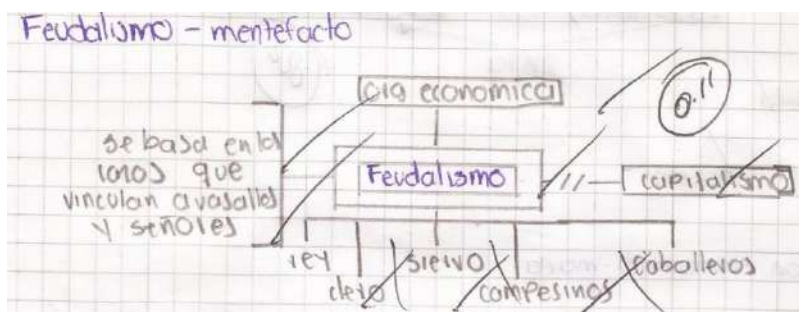 Feudalismo - mentefacto
org economica
se basa en los
lazos que
vinculan a vasallos
y señores
Feudalismo
capitalismo
rey
clero
siervo
campesinos
caballeros